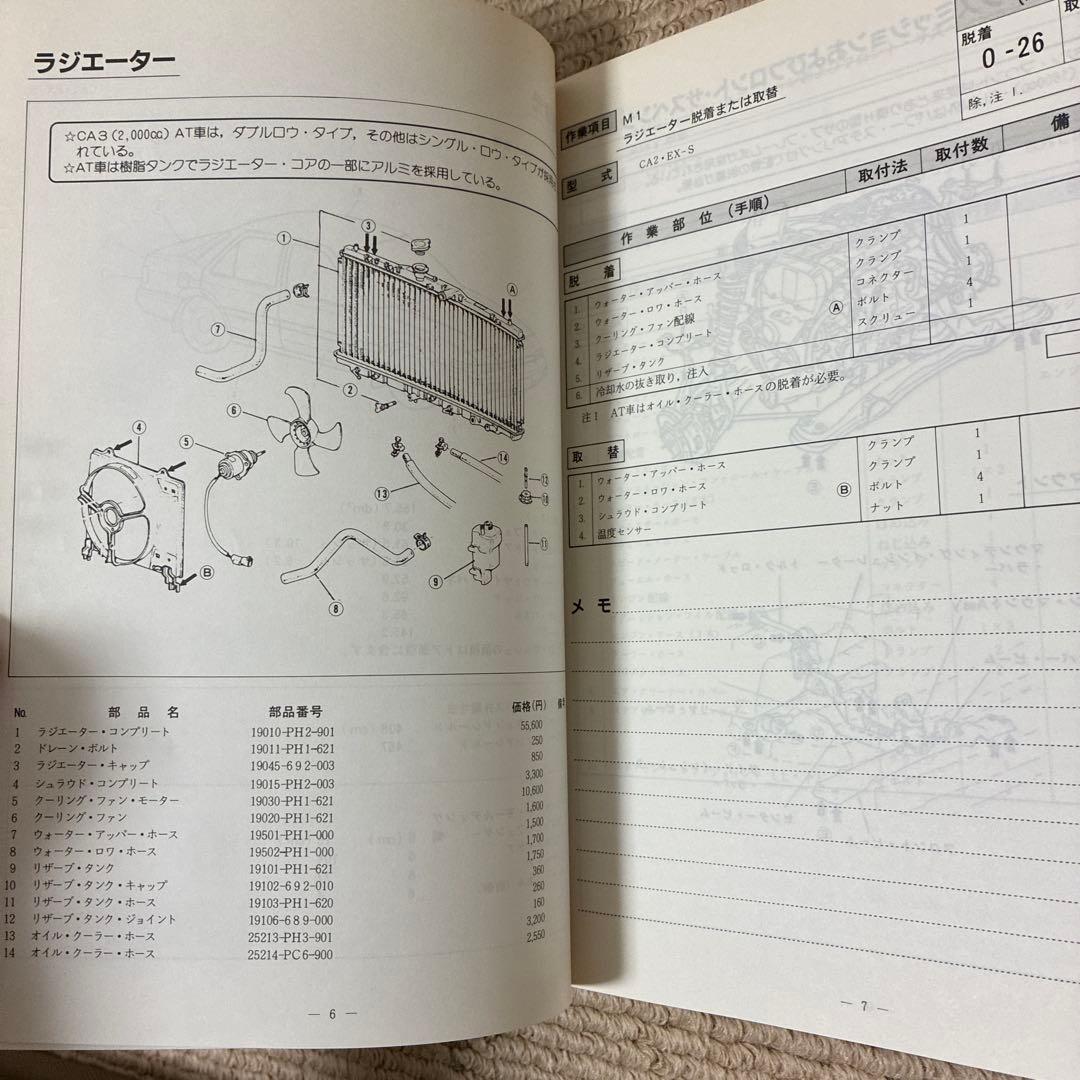 ラジエーター
☆CA3(2,000cc)AT車は,ダブルロウ・タイプ,その他はシングル・ロウ・タイプが
れている。
☆AT車は樹脂タンクでラジエーター・コアの一部にアルミを採用している。
① ③ Ⓐ
⑦ ②
⑥ ④ ⑤
⑭ ⑫ ⑬ ⑩
Ⓑ ⑪ ⑨ ⑧
No. 部品名 部品番号 価格(円) 備
1 ラジエーター・コンプリート 19010-PH2-901 55,600
2 ドレーン・ボルト 19011-PH1-621 250
3 ラジエーター・キャップ 19045-692-003 850
4 シュラウド・コンプリート 19015-PH2-003 3,300
5 クーリング・ファン・モーター 19030-PH1-621 10,600
6 クーリング・ファン 19020-PH1-621 1,600
7 ウォーター・アッパー・ホース 19501-PH1-000 1,500
8 ウォーター・ロワ・ホース 19502-PH1-000 1,700
9 リザーブ・タンク 19101-PH1-621 1,750
10 リザーブ・タンク・キャップ 19102-692-010 360
11 リザーブ・タンク・ホース 19103-PH1-620 260
12 リザーブ・タンク・ジョイント 19106-689-000 160
13 オイル・クーラー・ホース 25213-PH3-901 3,200
14 オイル・クーラー・ホース 25214-PC6-900 2,550
— 6 —
脱着 取
0-26
除,注1.
作業項目 M1
ラジエーター脱着または取替
型式 CA2・EX-S
作業部位(手順) 取付法 取付数 備
脱着
1. ウォーター・アッパー・ホース クランプ 1
2. ウォーター・ロワ・ホース クランプ 1
3. クーリング・ファン配線 コネクター 1
4. ラジエーター・コンプリート Ⓐ ボルト 4
5. リザーブ・タンク スクリュー 1
6. 冷却水の抜き取り,注入
注1 AT車はオイル・クーラー・ホースの脱着が必要。
取替
1. ウォーター・アッパー・ホース クランプ 1
2. ウォーター・ロワ・ホース クランプ 1
3. シュラウド・コンプリート Ⓑ ボルト 4
4. 温度センサー ナット 1
メモ
— 7 —